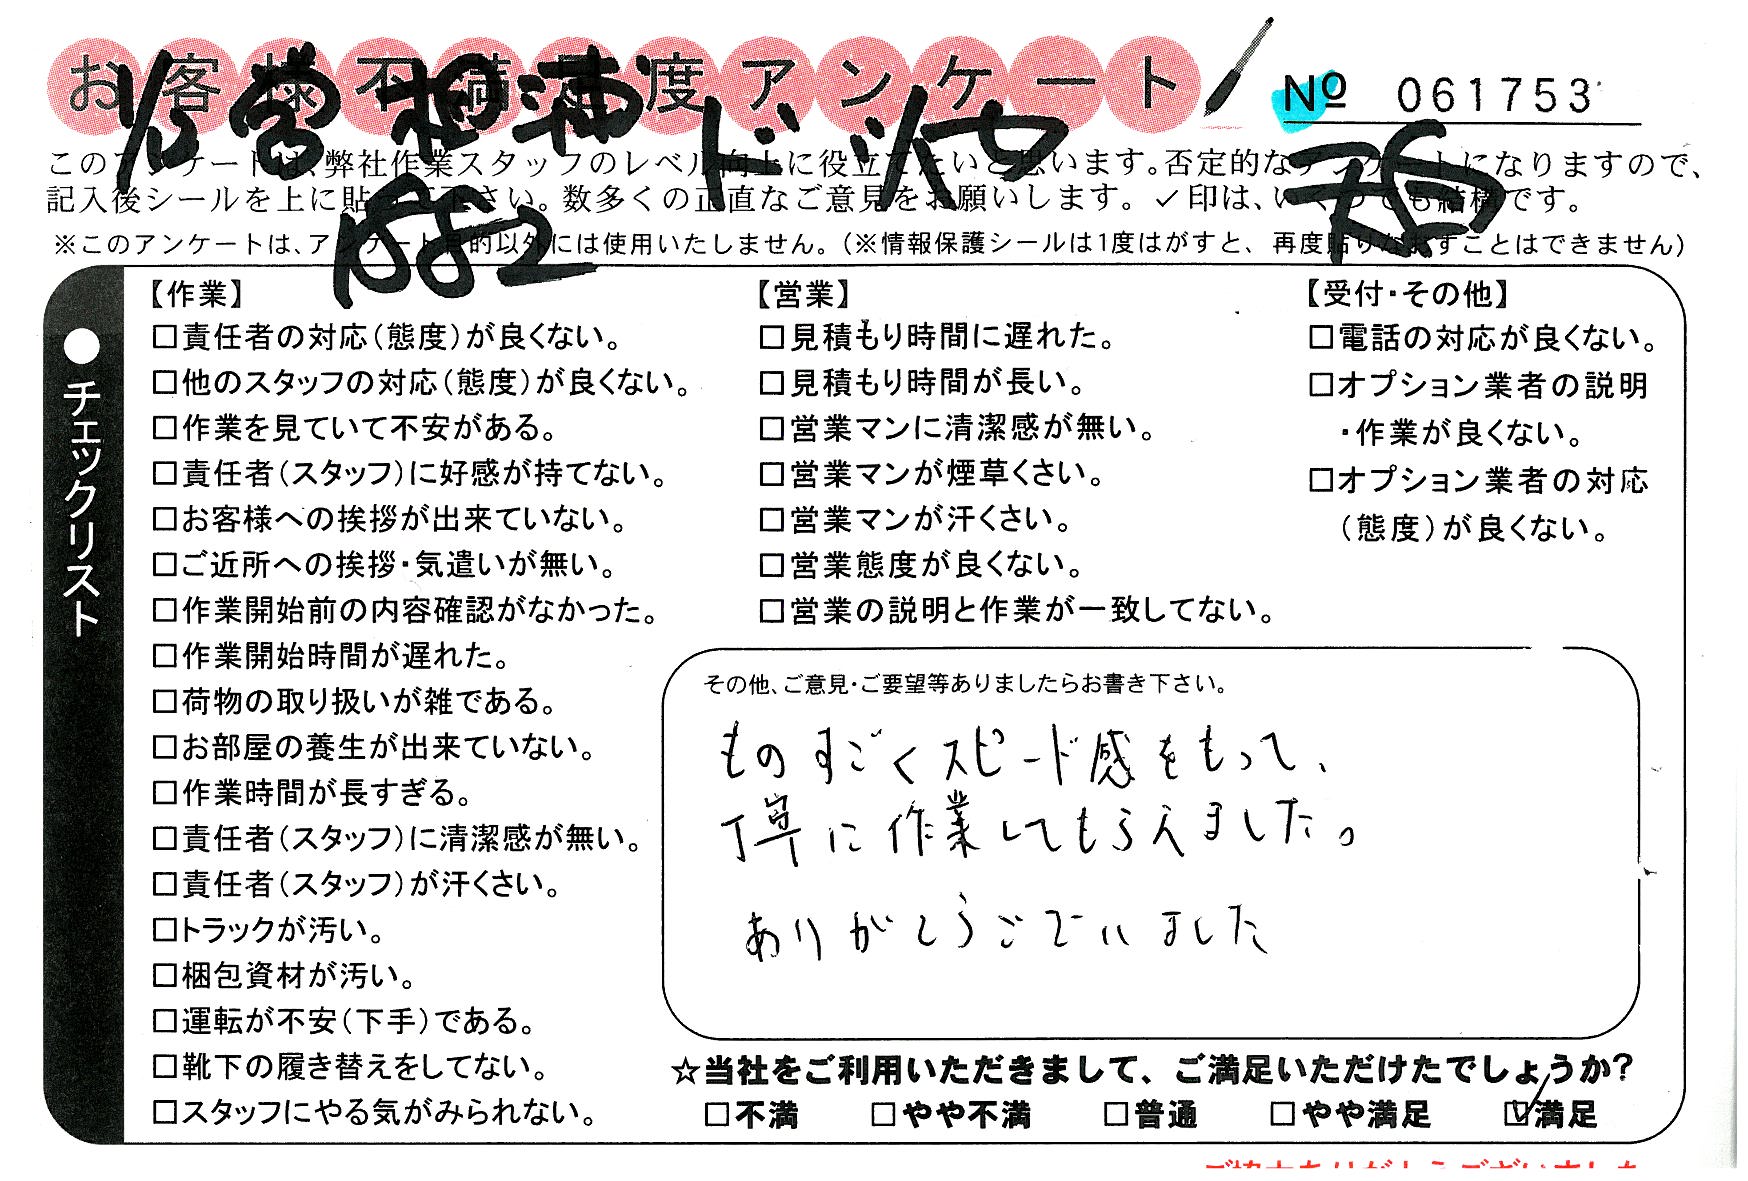 お客様不満足度アンケート
№ 061753
このアンケートは、弊社作業スタッフのレベル向上に役立てたいと思います。否定的なアンケートになりますので、
記入後シールを上に貼って下さい。数多くの正直なご意見をお願いします。✓印は、いくつでも結構です。
※このアンケートは、アンケート目的以外には使用いたしません。(※情報保護シールは1度はがすと、再度貼りなおすことはできません)
●チェックリスト
【作業】
□責任者の対応(態度)が良くない。
□他のスタッフの対応(態度)が良くない。
□作業を見ていて不安がある。
□責任者(スタッフ)に好感が持てない。
□お客様への挨拶が出来ていない。
□ご近所への挨拶・気遣いが無い。
□作業開始前の内容確認がなかった。
□作業開始時間が遅れた。
□荷物の取り扱いが雑である。
□お部屋の養生が出来ていない。
□作業時間が長すぎる。
□責任者(スタッフ)に清潔感が無い。
□責任者(スタッフ)が汗くさい。
□トラックが汚い。
□梱包資材が汚い。
□運転が不安(下手)である。
□靴下の履き替えをしてない。
□スタッフにやる気がみられない。
【営業】
□見積もり時間に遅れた。
□見積もり時間が長い。
□営業マンに清潔感が無い。
□営業マンが煙草くさい。
□営業マンが汗くさい。
□営業態度が良くない。
□営業の説明と作業が一致してない。
【受付・その他】
□電話の対応が良くない。
□オプション業者の説明
・作業が良くない。
□オプション業者の対応
(態度)が良くない。
その他、ご意見・ご要望等ありましたらお書き下さい。
ものすごくスピード感をもって、
丁寧に作業してもらえました。
ありがとうございました
☆当社をご利用いただきまして、ご満足いただけたでしょうか?
□不満 □やや不満 □普通 □やや満足 ☑満足
ご協力ありがとうございました